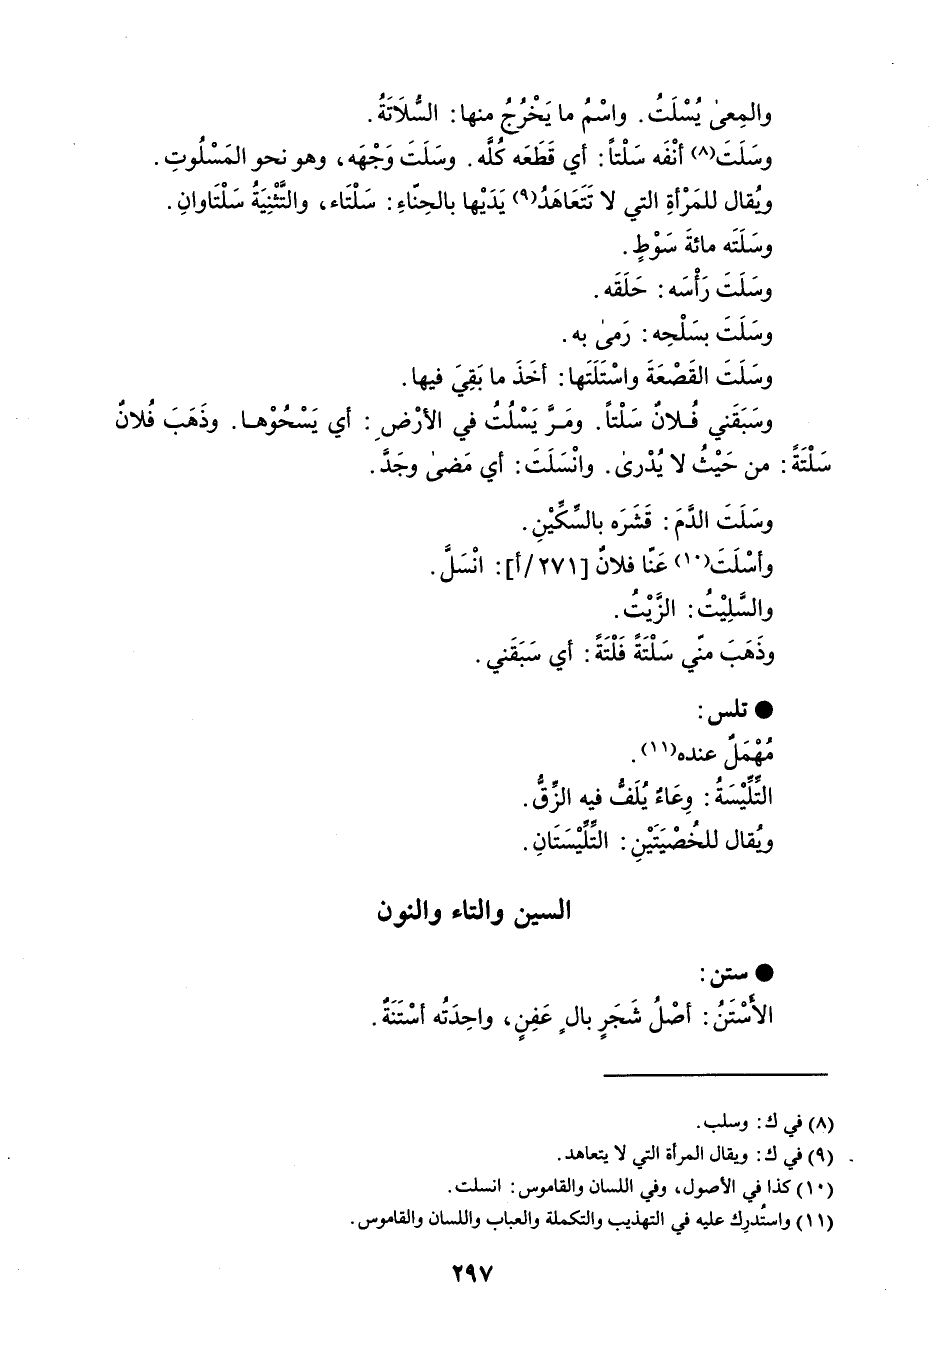 والمِعىٰ يُسْلَتُ. واسْمُ ما يَخْرُجُ منها: السُّلَاتَةُ.
وسَلَتَ(٨) أنْفَه سَلْتاً: أي قَطَعَه كُلَّه. وسَلَتَ وَجْهَه، وهو نحو المَسْلُوتِ.
ويُقال للمَرْأةِ التي لا تَتَعاهَدُ(٩) يَدَيْها بالحِنّاءِ: سَلْتَاء، والتَّثْنِيَةُ سَلْتَاوانِ.
وسَلَتَه مائةَ سَوْطٍ.
وسَلَتَ رَأْسَه: حَلَقَه.
وسَلَتَ بسَلْحِه: رَمىٰ به.
وسَلَتَ القَصْعَةَ واسْتَلَتَها: أخَذَ ما بَقِيَ فيها.
وسَبَقَني فُـلانٌ سَلْتاً. ومَـرَّ يَسْلُتُ في الأرْضِ: أي يَسْحُوْهـا. وذَهَبَ فُلانٌ
سَلْتَةً: من حَيْثُ لا يُدْرىٰ. وانْسَلَتَ: أي مَضىٰ وجَدَّ.
وسَلَتَ الدَّمَ: قَشَرَه بالسِّكِّيْنِ.
وأسْلَتَ(١٠) عَنّا فلانٌ [٢٧١/أ]: انْسَلَّ.
والسَّلِيْتُ: الزَّيْتُ.
وذَهَبَ منّي سَلْتَةً فَلْتَةً: أي سَبَقَني.
● تلس:
مُهْمَلٌ عنده(١١).
التِّلِّيْسَةُ: وِعَاءٌ يُلَفُّ فيه الزِّقُّ.
ويُقال للخُصْيَتَيْنِ: التِّلِّيْسَتَانِ.
السين والتاء والنون
● ستن:
الأَسْتَنُ: أصْلُ شَجَرٍ بالٍ عَفِنٍ، واحِدَتُه أسْتَنَةٌ.
(٨) في ك: وسلب.
(٩) في ك: ويقال المرأة التي لا يتعاهد.
(١٠) كذا في الأصول، وفي اللسان والقاموس: انسلت.
(١١) واستُدرِك عليه في التهذيب والتكملة والعباب واللسان والقاموس.
٢٩٧